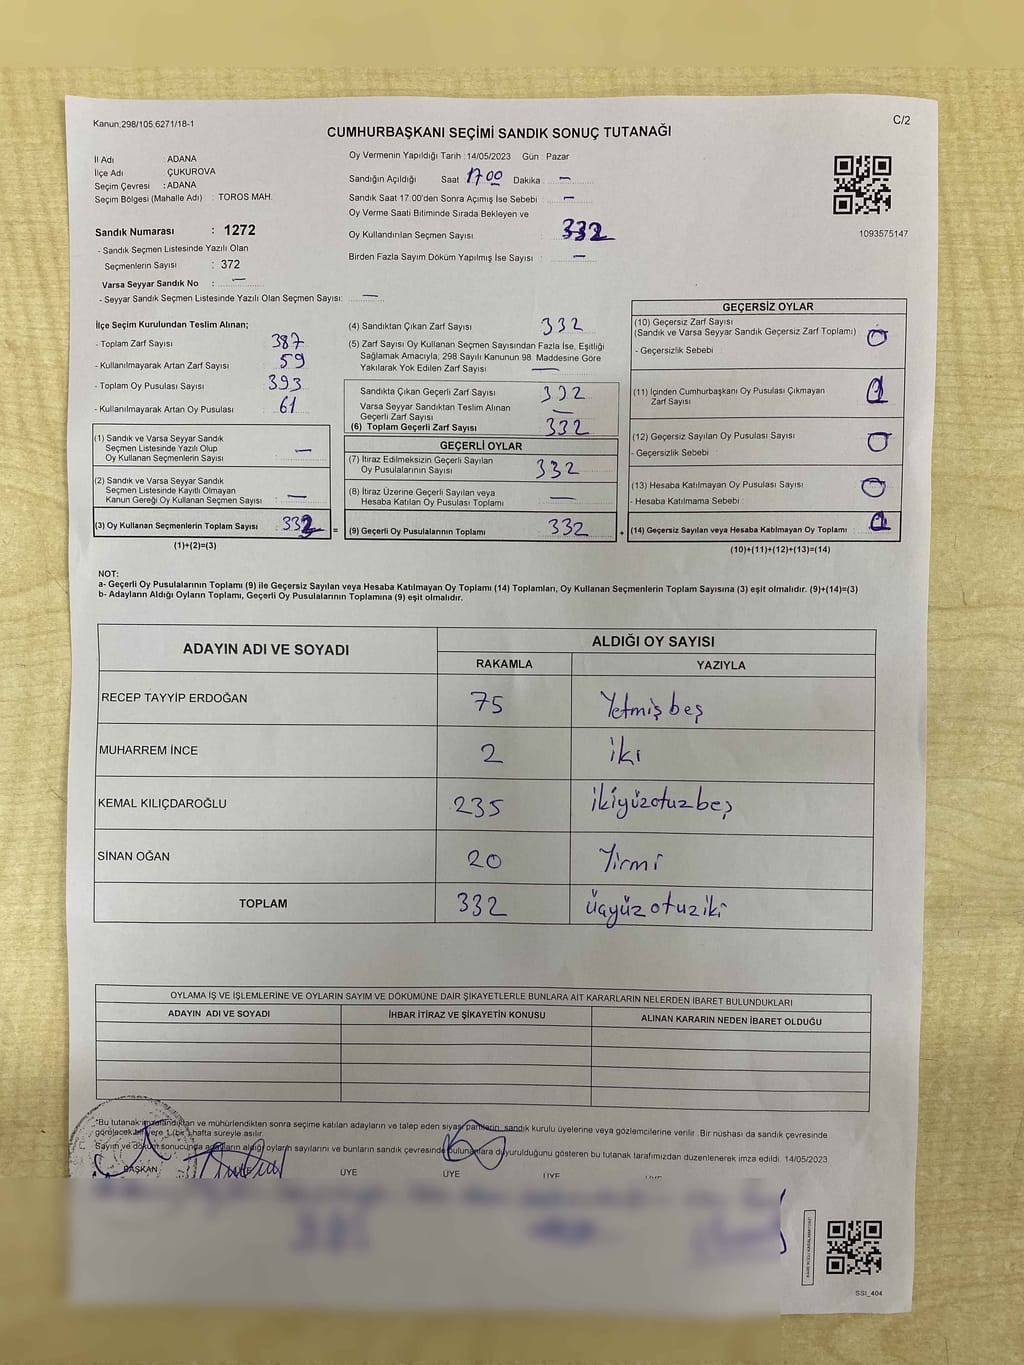 Kanun:298/105.6271/18-1
C/2
CUMHURBAŞKANI SEÇİMİ SANDIK SONUÇ TUTANAĞI
İl Adı : ADANA
İlçe Adı : ÇUKUROVA
Seçim Çevresi : ADANA
Seçim Bölgesi (Mahalle Adı) : TOROS MAH.
Sandık Numarası : 1272
- Sandık Seçmen Listesinde Yazılı Olan
Seçmenlerin Sayısı : 372
Varsa Seyyar Sandık No : —
- Seyyar Sandık Seçmen Listesinde Yazılı Olan Seçmen Sayısı: —
Oy Vermenin Yapıldığı Tarih : 14/05/2023 Gün : Pazar
Sandığın Açıldığı Saat 17.00 Dakika : —
Sandık Saat 17.00'den Sonra Açımış İse Sebebi : —
Oy Verme Saati Bitiminde Sırada Bekleyen ve
Oy Kullandırılan Seçmen Sayısı : 332
Birden Fazla Sayım Döküm Yapılmış İse Sayısı : —
1093575147
İlçe Seçim Kurulundan Teslim Alınan;
- Toplam Zarf Sayısı : 387
- Kullanılmayarak Artan Zarf Sayısı : 59
- Toplam Oy Pusulası Sayısı : 393
- Kullanılmayarak Artan Oy Pusulası : 61
(1) Sandık ve Varsa Seyyar Sandık
Seçmen Listesinde Yazılı Olup
Oy Kullanan Seçmenlerin Sayısı : —
(2) Sandık ve Varsa Seyyar Sandık
Seçmen Listesinde Kayıtlı Olmayan
Kanun Gereği Oy Kullanan Seçmen Sayısı : —
(3) Oy Kullanan Seçmenlerin Toplam Sayısı : 332
(1)+(2)=(3)
(4) Sandıktan Çıkan Zarf Sayısı 332
(5) Zarf Sayısı Oy Kullanan Seçmen Sayısından Fazla İse, Eşitliği
Sağlamak Amacıyla, 298 Sayılı Kanunun 98. Maddesine Göre
Yakılarak Yok Edilen Zarf Sayısı : —
Sandıkta Çıkan Geçerli Zarf Sayısı 332
Varsa Seyyar Sandıktan Teslim Alınan
Geçerli Zarf Sayısı —
(6) Toplam Geçerli Zarf Sayısı 332
GEÇERLİ OYLAR
(7) İtiraz Edilmeksizin Geçerli Sayılan
Oy Pusulalarının Sayısı 332
(8) İtiraz Üzerine Geçerli Sayılan veya
Hesaba Katılan Oy Pusulası Toplamı —
= (9) Geçerli Oy Pusulalarının Toplamı 332
GEÇERSİZ OYLAR
(10) Geçersiz Zarf Sayısı
(Sandık ve Varsa Seyyar Sandık Geçersiz Zarf Toplamı) 0
- Geçersizlik Sebebi :
(11) İçinden Cumhurbaşkanı Oy Pusulası Çıkmayan
Zarf Sayısı
(12) Geçersiz Sayılan Oy Pusulası Sayısı 0
- Geçersizlik Sebebi :
(13) Hesaba Katılmayan Oy Pusulası Sayısı 0
- Hesaba Katılmama Sebebi :
+ (14) Geçersiz Sayılan veya Hesaba Katılmayan Oy Toplamı
(10)+(11)+(12)+(13)=(14)
NOT:
a- Geçerli Oy Pusulalarının Toplamı (9) ile Geçersiz Sayılan veya Hesaba Katılmayan Oy Toplamı (14) Toplamları, Oy Kullanan Seçmenlerin Toplam Sayısına (3) eşit olmalıdır. (9)+(14)=(3)
b- Adayların Aldığı Oyların Toplamı, Geçerli Oy Pusulalarının Toplamına (9) eşit olmalıdır.
ADAYIN ADI VE SOYADI ALDIĞI OY SAYISI
RAKAMLA YAZIYLA
RECEP TAYYİP ERDOĞAN 75 Yetmiş beş
MUHARREM İNCE 2 iki
KEMAL KILIÇDAROĞLU 235 ikiyüzotuzbeş
SİNAN OĞAN 20 Yirmi
TOPLAM 332 üçyüzotuziki
OYLAMA İŞ VE İŞLEMLERİNE VE OYLARIN SAYIM VE DÖKÜMÜNE DAİR ŞİKAYETLERLE BUNLARA AİT KARARLARIN NELERDEN İBARET BULUNDUKLARI
ADAYIN ADI VE SOYADI İHBAR İTİRAZ VE ŞİKAYETİN KONUSU ALINAN KARARIN NEDEN İBARET OLDUĞU
*Bu tutanak imzalandıktan ve mühürlendikten sonra seçime katılan adayların ve talep eden siyasi partilerin, sandık kurulu üyelerine veya gözlemcilerine verilir. Bir nüshası da sandık çevresinde
görülecek bir yere 1 (bir) hafta süreyle asılır.
Sayım ve döküm sonucunda adayların aldığı oyların sayılarını ve bunların sandık çevresinde bulunanlara duyurulduğunu gösteren bu tutanak tarafımızdan düzenlenerek imza edildi. 14/05/2023
BAŞKAN ÜYE ÜYE ÜYE
SSI_404